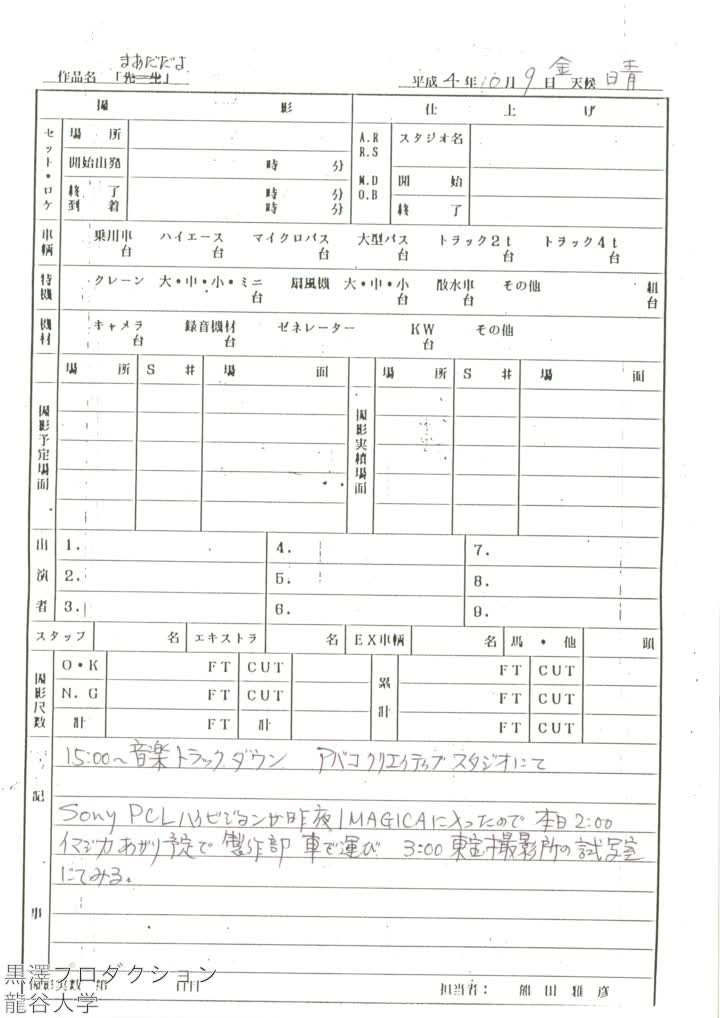 まあだだよ
作品名 「先生」
平成4年10月9日 金 天候 晴
撮 影 仕 上 げ
セット・ロケ
場 所
開始出発 時 分
終 了 時 分
到 着 時 分
A.R
R.S
M.D
O.B
スタジオ名
開 始
終 了
車輌 乗用車 台 ハイエース 台 マイクロバス 台 大型バス 台 トラック2t 台 トラック4t 台
特機 クレーン 大・中・小・ミニ 台 扇風機 大・中・小 台 散水車 台 その他 組 台
機材 キャメラ 台 録音機材 台 ゼネレーター KW 台 その他
撮影予定場面 場 所 S 井 場 面
撮影実績場面 場 所 S 井 場 面
出演者
1. 4. 7.
2. 5. 8.
3. 6. 9.
スタッフ 名 エキストラ 名 EX車輌 名 馬・他 頭
撮影尺数
O・K FT CUT 累計 FT CUT
N.G FT CUT FT CUT
計 FT 計 FT CUT
記事
15:00〜音楽トラックダウン アバコクリエイティブスタジオにて
Sony PCLハイビジョンが昨夜IMAGICAに入ったので 本日2:00
イマジカあがり予定で製作部 車で運び 3:00 東宝撮影所の試写室
にてみる。
撮影実数 第 日目
担当者: 熊田雅彦
黒澤プロダクション
龍谷大学